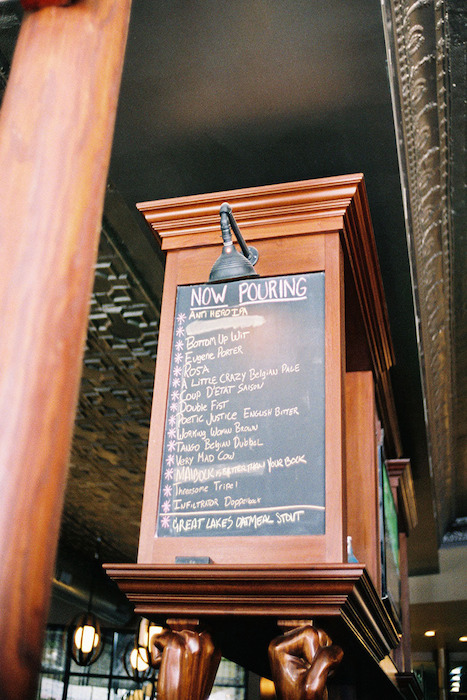 NOW POURING
* ANTI HERO IPA
*
* BOTTOM UP WIT
* EUGENE PORTER
* ROSA
* A LITTLE CRAZY BELGIAN PALE
* COUP D'ETAT SAISON
* DOUBLE FIST
* POETIC JUSTICE ENGLISH BITTER
* WORKING WOMAN BROWN
* TANGO BELGIAN DUBBEL
* VERY MAD COW
* MAIBOCK IS BETTER THAN YOUR BOCK
* THREESOME TRIPEL
* INFILTRATOR DOPPELBOCK
* GREAT LAKES OATMEAL STOUT